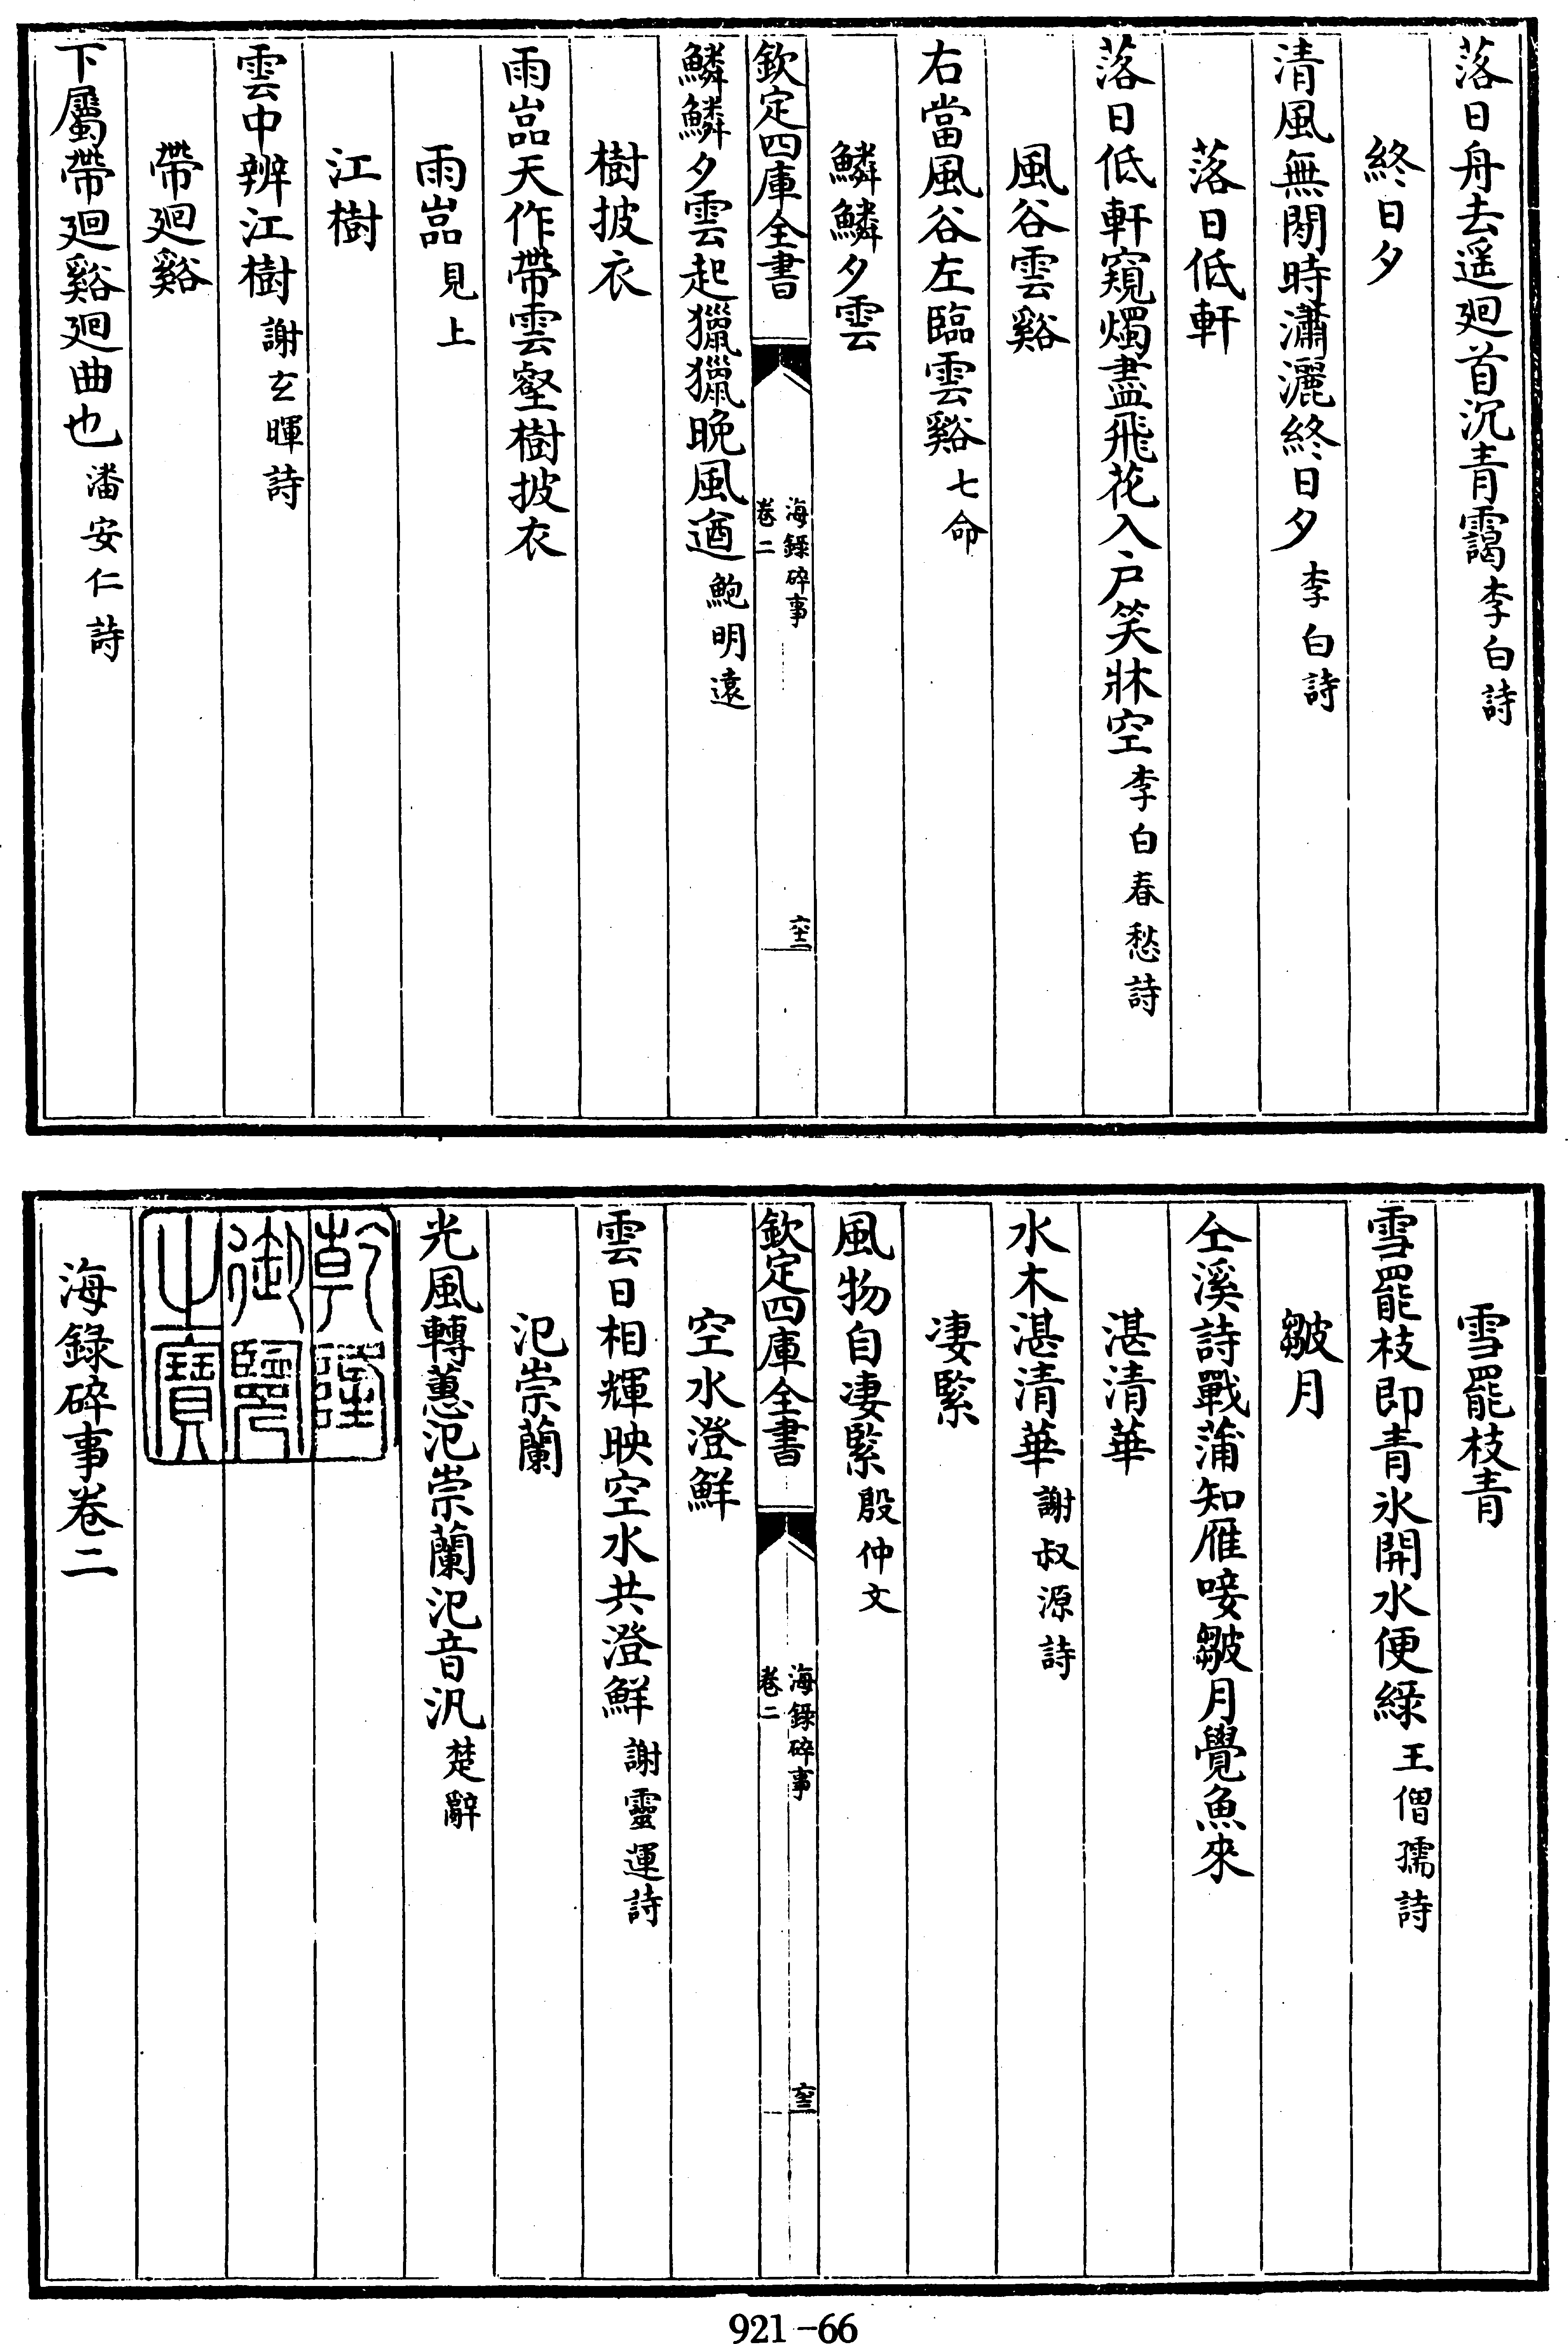 落日舟去遥廻首沉青靄李白詩
終日夕
清風無閒時瀟灑終日夕李白詩
落日低軒
落日低軒窺燭盡飛花入户笑牀空李白春愁詩
風谷雲谿
右當風谷左臨雲谿七命
鱗鱗夕雲
欽定四庫全書
海錄碎事
卷二
六十二
鱗鱗夕雲起獵獵晚風遒鮑明遠
樹披衣
雨嵓天作帶雲壑樹披衣
雨嵓見上
江樹
雲中辨江樹謝玄暉詩
帶廻谿
下屬帶廻谿廻曲也潘安仁詩
雪罷枝青
雪罷枝即青氷開水便綠王僧孺詩
皺月
仝溪詩戰蒲知雁唼皺月覺魚來
湛清華
水木湛清華謝叔源詩
凄緊
風物自凄緊殷仲文
欽定四庫全書
海錄碎事
卷二
六十三
空水澄鮮
雲日相輝映空水共澄鮮謝靈運詩
氾崇蘭
光風轉蕙氾崇蘭氾音汎楚辭
乾隆
御覽
之寶
海錄碎事卷二
921-66